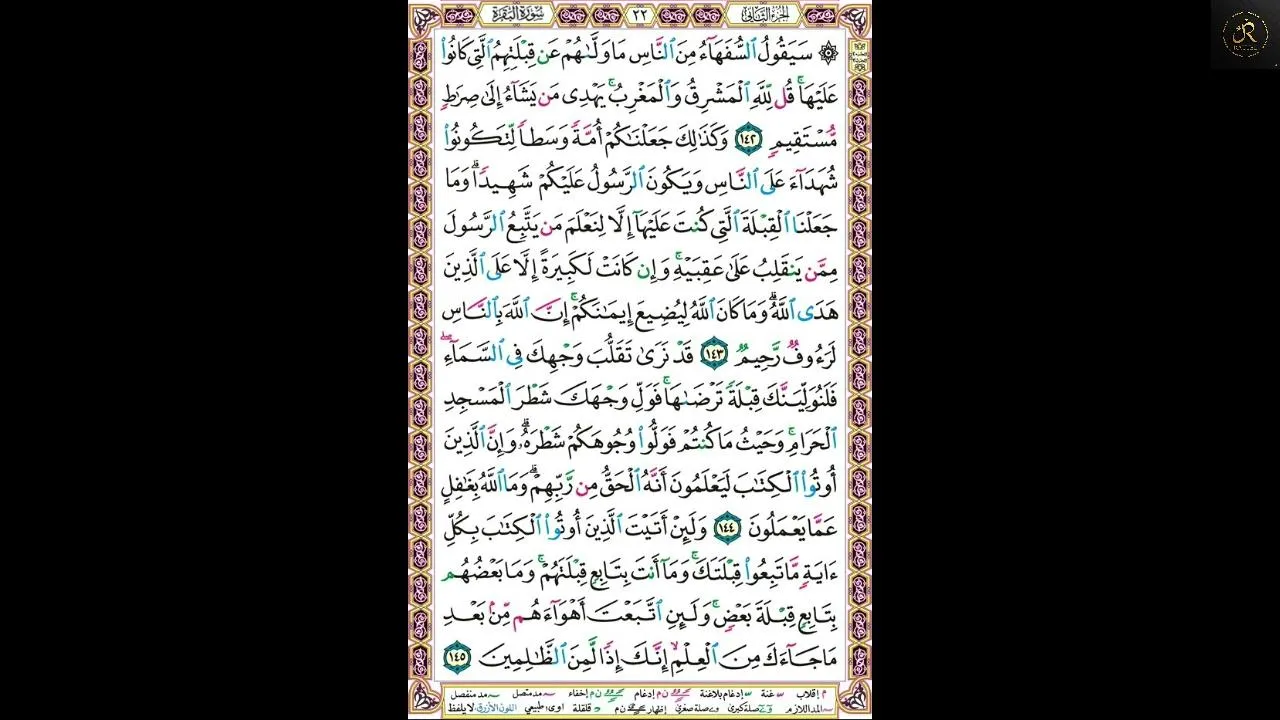 الجزء الثاني
٢٢
سورة البقرة
۞ سَيَقُولُ ٱلسُّفَهَآءُ مِنَ ٱلنَّاسِ مَا وَلَّىٰهُمْ عَن قِبْلَتِهِمُ ٱلَّتِى كَانُوا۟
عَلَيْهَا ۚ قُل لِّلَّهِ ٱلْمَشْرِقُ وَٱلْمَغْرِبُ ۚ يَهْدِى مَن يَشَآءُ إِلَىٰ صِرَٰطٍ
مُّسْتَقِيمٍ ١٤٢ وَكَذَٰلِكَ جَعَلْنَٰكُمْ أُمَّةً وَسَطًا لِّتَكُونُوا۟
شُهَدَآءَ عَلَى ٱلنَّاسِ وَيَكُونَ ٱلرَّسُولُ عَلَيْكُمْ شَهِيدًا ۗ وَمَا
جَعَلْنَا ٱلْقِبْلَةَ ٱلَّتِى كُنتَ عَلَيْهَآ إِلَّا لِنَعْلَمَ مَن يَتَّبِعُ ٱلرَّسُولَ
مِمَّن يَنقَلِبُ عَلَىٰ عَقِبَيْهِ ۚ وَإِن كَانَتْ لَكَبِيرَةً إِلَّا عَلَى ٱلَّذِينَ
هَدَى ٱللَّهُ ۗ وَمَا كَانَ ٱللَّهُ لِيُضِيعَ إِيمَٰنَكُمْ ۚ إِنَّ ٱللَّهَ بِٱلنَّاسِ
لَرَءُوفٌ رَّحِيمٌ ١٤٣ قَدْ نَرَىٰ تَقَلُّبَ وَجْهِكَ فِى ٱلسَّمَآءِ ۖ
فَلَنُوَلِّيَنَّكَ قِبْلَةً تَرْضَىٰهَا ۚ فَوَلِّ وَجْهَكَ شَطْرَ ٱلْمَسْجِدِ
ٱلْحَرَامِ ۚ وَحَيْثُ مَا كُنتُمْ فَوَلُّوا۟ وُجُوهَكُمْ شَطْرَهُۥ ۗ وَإِنَّ ٱلَّذِينَ
أُوتُوا۟ ٱلْكِتَٰبَ لَيَعْلَمُونَ أَنَّهُ ٱلْحَقُّ مِن رَّبِّهِمْ ۗ وَمَا ٱللَّهُ بِغَٰفِلٍ
عَمَّا يَعْمَلُونَ ١٤٤ وَلَئِنْ أَتَيْتَ ٱلَّذِينَ أُوتُوا۟ ٱلْكِتَٰبَ بِكُلِّ
ءَايَةٍ مَّا تَبِعُوا۟ قِبْلَتَكَ ۚ وَمَآ أَنتَ بِتَابِعٍ قِبْلَتَهُمْ ۚ وَمَا بَعْضُهُم
بِتَابِعٍ قِبْلَةَ بَعْضٍ ۚ وَلَئِنِ ٱتَّبَعْتَ أَهْوَآءَهُم مِّنۢ بَعْدِ
مَا جَآءَكَ مِنَ ٱلْعِلْمِ ۙ إِنَّكَ إِذًا لَّمِنَ ٱلظَّٰلِمِينَ ١٤٥
م إقلاب غنة إدغام بلاغنة ن م إدغام ن م إخفاء مد متصل مد منفصل
المد اللازم صلة كبرى صلة صغرى إظهار ن م قلقلة اوى: طبيعي اللون الأزرق: لا يلفظ